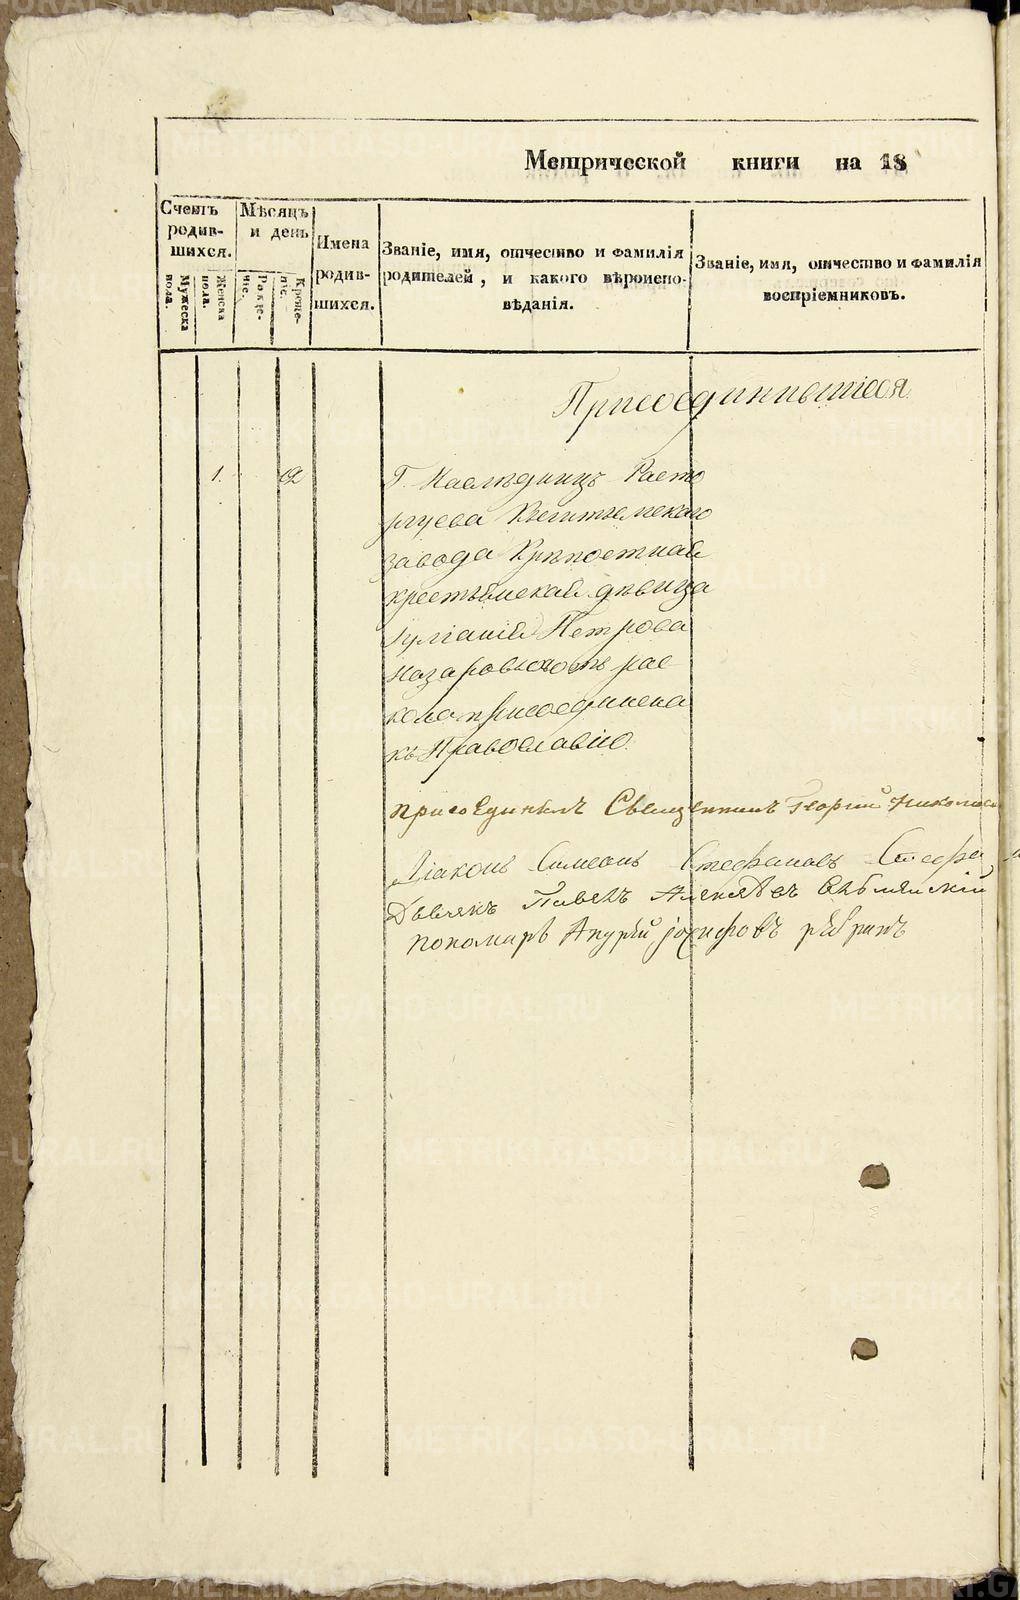 Метрической книги на 18
Счетъ родив-шихся.
Мужеска пола.
Женска пола.
Мѣсяцъ и день
Рожде-ніе.
Креще-ніе.
Имена родив-шихся.
Званіе, имя, отчество и фамилія
родителей, и какого вѣроиспо-
вѣданія.
Званіе, имя, отчество и фамилія
воспріемниковъ.
Присоединившіеся
1. 12
Г. Наслѣдницъ Расто
ргуева Кыштымскаго
завода Крѣпостная
крестьянская дѣвица
Іуліанія Петрова
Назарова отъ рас
кола присоединена
къ Православію.
присоединилъ Священникъ Георгий
Діаконъ Симеонъ Стефановъ
Дьячекъ Павелъ
пономарь Андрей
METRIKI.GASO-URAL.RU